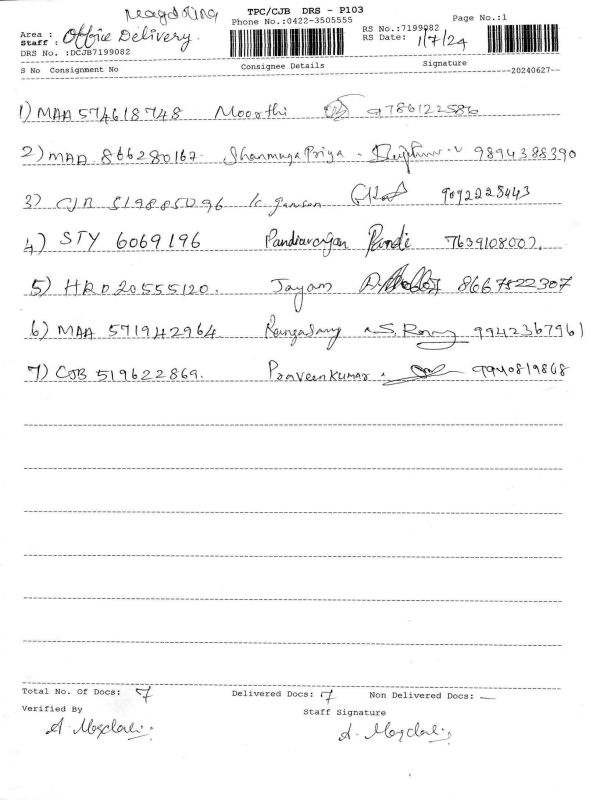 TPC/CJB DRS - P103
Phone No.:0422-3505555
Page No.:1
Area :
Staff : Office Delivery.
RS No.:7199082
RS Date: 1/7/24
DRS No. :DCJB7199082
S No Consignment No Consignee Details Signature
--20240627--
1) MAA 574618748 Moorthi 9786122586
2) MAA 866280167. ShanmugaPriya. 9894388390
3) CJB 519885096 K. 9092228443
4) STY 6069196 Pandiarajan Pandi 7639108007.
5) HRD 20555120. Jayam 8667522307
6) MAA 571942964 S. 9942367961
7) CJB 519622869. Praveenkumar. 9940819868
Total No. Of Docs: 7 Delivered Docs: 7 Non Delivered Docs: —
Verified By Staff Signature